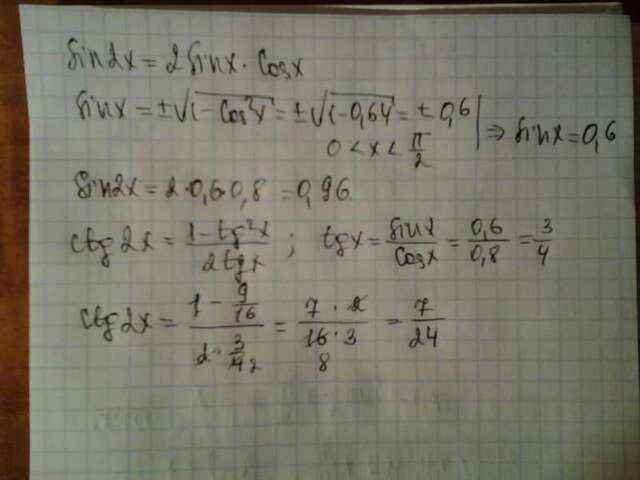 sin2x = 2 sinx · cosx
sinx = ±√(1-cos²x) = ±√(1-0,64) = ±0,6 | ⇒ sinx = 0,6
0 < x < π/2
sin2x = 2·0,6·0,8 = 0,96
ctg2x = (1-tg²x)/(2tgx) ; tgx = sinx/cosx = 0,6/0,8 = 3/4
ctg2x = (1 - 9/16)/(2·3/4 2) = (7·2)/(16·3 8) = 7/24